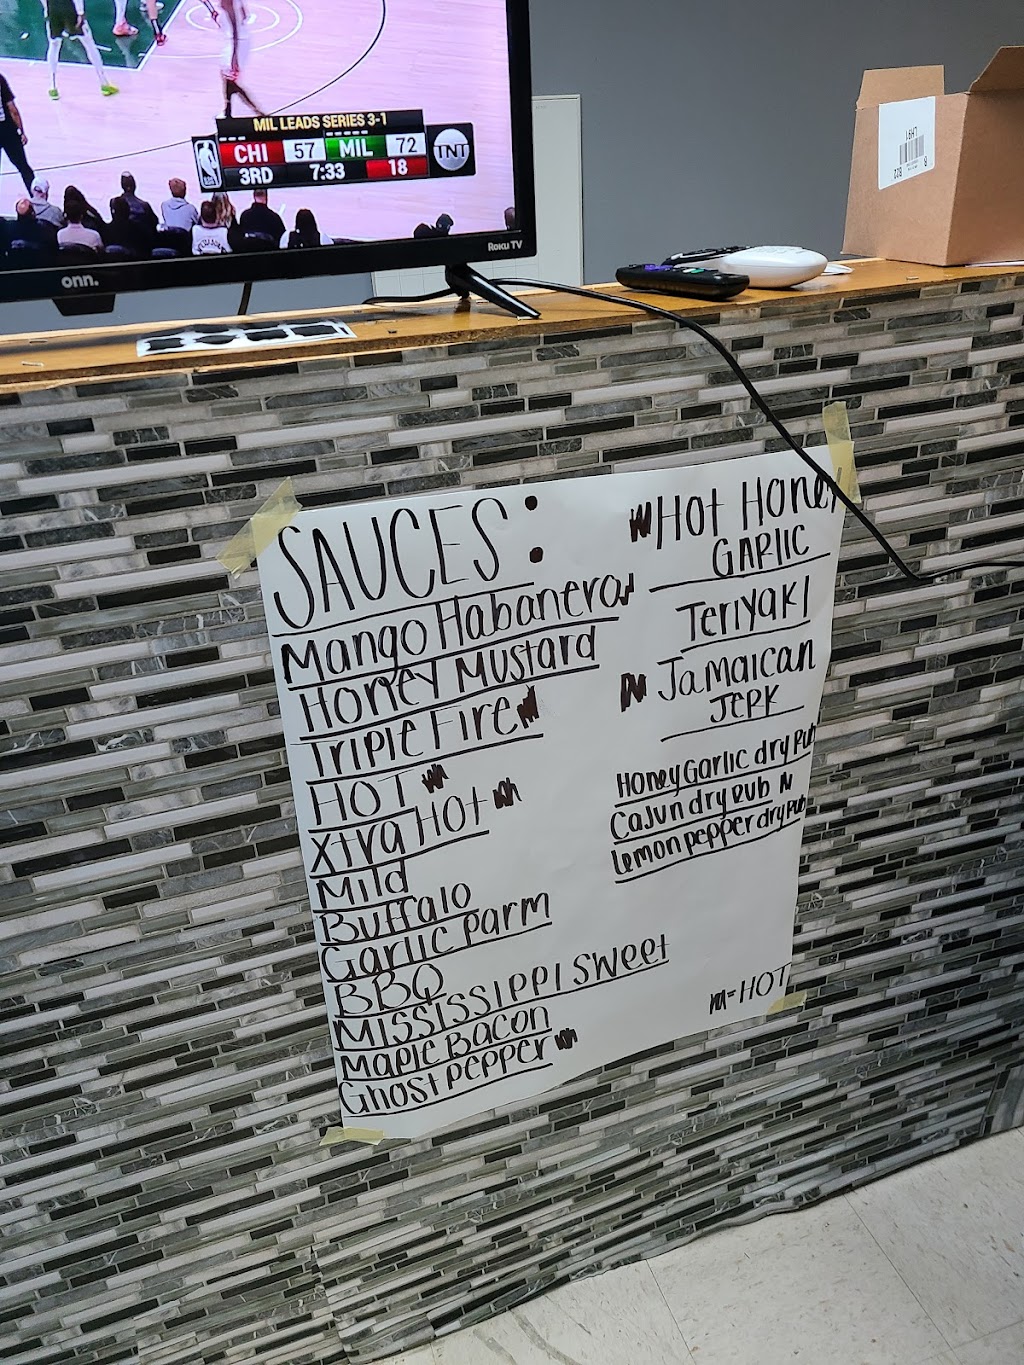 MIL LEADS SERIES 3-1
CHI 57 MIL 72
3RD 7:33 18
TNT
onn.
Roku TV
LH91
SAUCES:
Mango Habanero
Honey Mustard
Triple Fire
HOT
Xtra HOT
Mild
Buffalo
Garlic parm
BBQ
MISSISSIPPI Sweet
Maple Bacon
Ghost pepper
HOT HONEY
GARLIC
Teriyaki
Jamaican
Jerk
Honey Garlic dry rub
Cajun dry rub
lemon pepper dry rub
= HOT